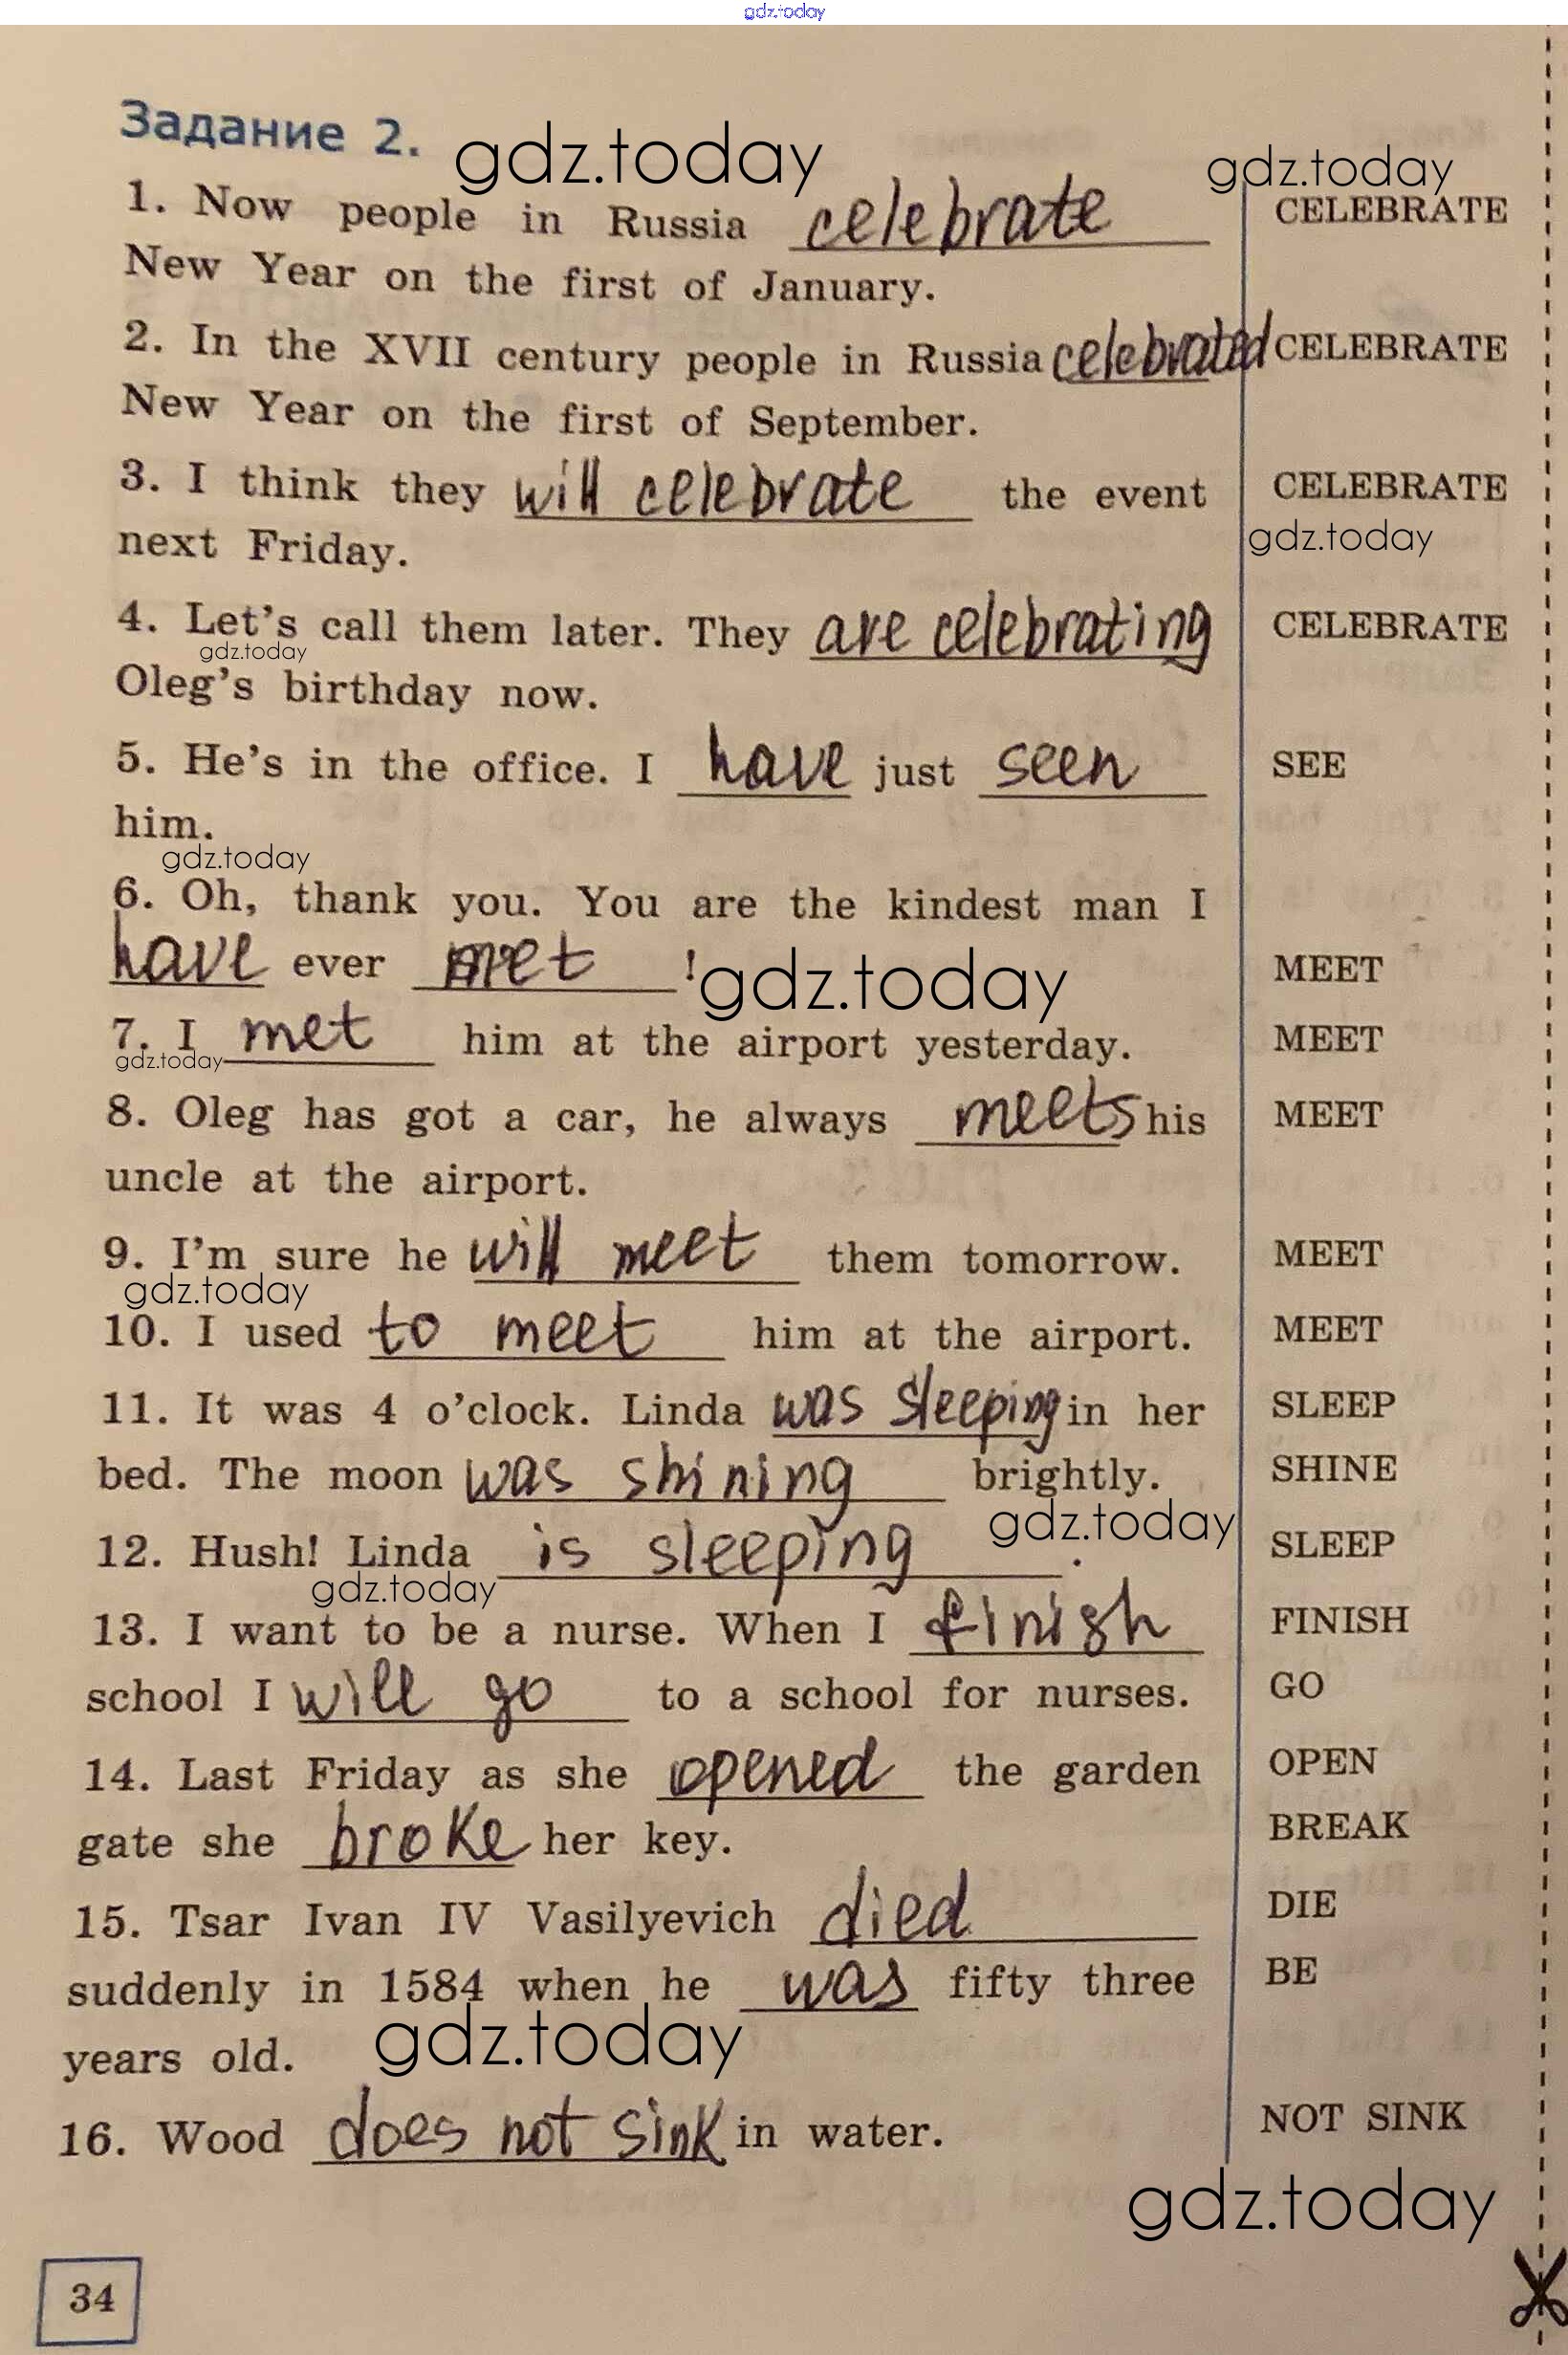 gdz.today
Задание 2.
gdz.today
gdz.today
1. Now people in Russia celebrate CELEBRATE
New Year on the first of January.
2. In the XVII century people in Russia celebrated CELEBRATE
New Year on the first of September.
3. I think they will celebrate the event CELEBRATE
next Friday.
gdz.today
4. Let's call them later. They are celebrating CELEBRATE
gdz.today
Oleg's birthday now.
5. He's in the office. I have just seen SEE
him.
gdz.today
6. Oh, thank you. You are the kindest man I
have ever met ! MEET
gdz.today
7. I met him at the airport yesterday. MEET
gdz.today
8. Oleg has got a car, he always meets his MEET
uncle at the airport.
9. I'm sure he will meet them tomorrow. MEET
gdz.today
10. I used to meet him at the airport. MEET
11. It was 4 o'clock. Linda was sleeping in her SLEEP
bed. The moon was shining brightly. SHINE
gdz.today
12. Hush! Linda is sleeping . SLEEP
gdz.today
13. I want to be a nurse. When I finish FINISH
school I will go to a school for nurses. GO
14. Last Friday as she opened the garden OPEN
gate she broke her key. BREAK
15. Tsar Ivan IV Vasilyevich died DIE
suddenly in 1584 when he was fifty three BE
years old.
gdz.today
16. Wood does not sink in water. NOT SINK
gdz.today
34